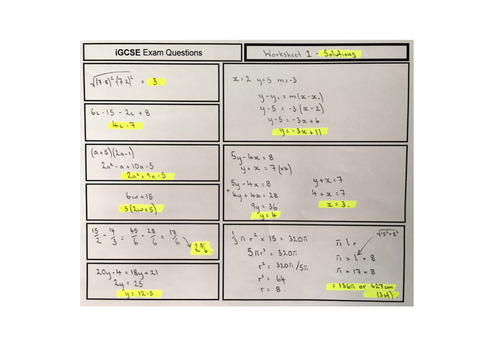 iGCSE Exam Questions
Worksheet 1 - Solutions
√(7·8)²-(7·2)² = 3
6c - 15 - 2c + 8
4c - 7
(a+5)(2a-1)
2a² - a + 10a - 5
2a² + 9a - 5
6w + 15
3(2w+5)
15/2 - 14/3 = 45/6 - 28/6 = 17/6
2 5/6
20y - 4 = 18y + 21
2y = 25
y = 12·5
x = 2 y = 5 m = -3
y - y₁ = m(x - x₁)
y - 5 = -3(x - 2)
y - 5 = -3x + 6
y = -3x + 11
5y - 4x = 8
y + x = 7 (x4)
5y - 4x = 8
4y + 4x = 28
9y = 36
y = 4
y + x = 7
4 + x = 7
x = 3.
1/3 π r² × 15 = 320π
5πr² = 320π
r² = 320π/5π
r² = 64
r = 8
√15²+8²
π L r
π × L × 8
π × 17 × 8
= 136π or 427cm
(3sf)